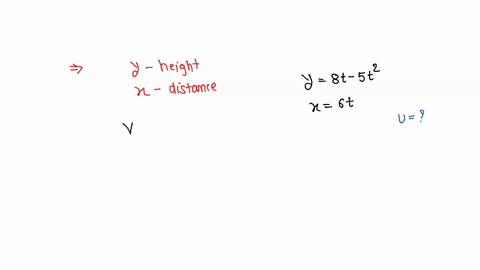 ⇒ y - height
x - distance
y = 8t - 5t²
x = 6t
u = ?
V